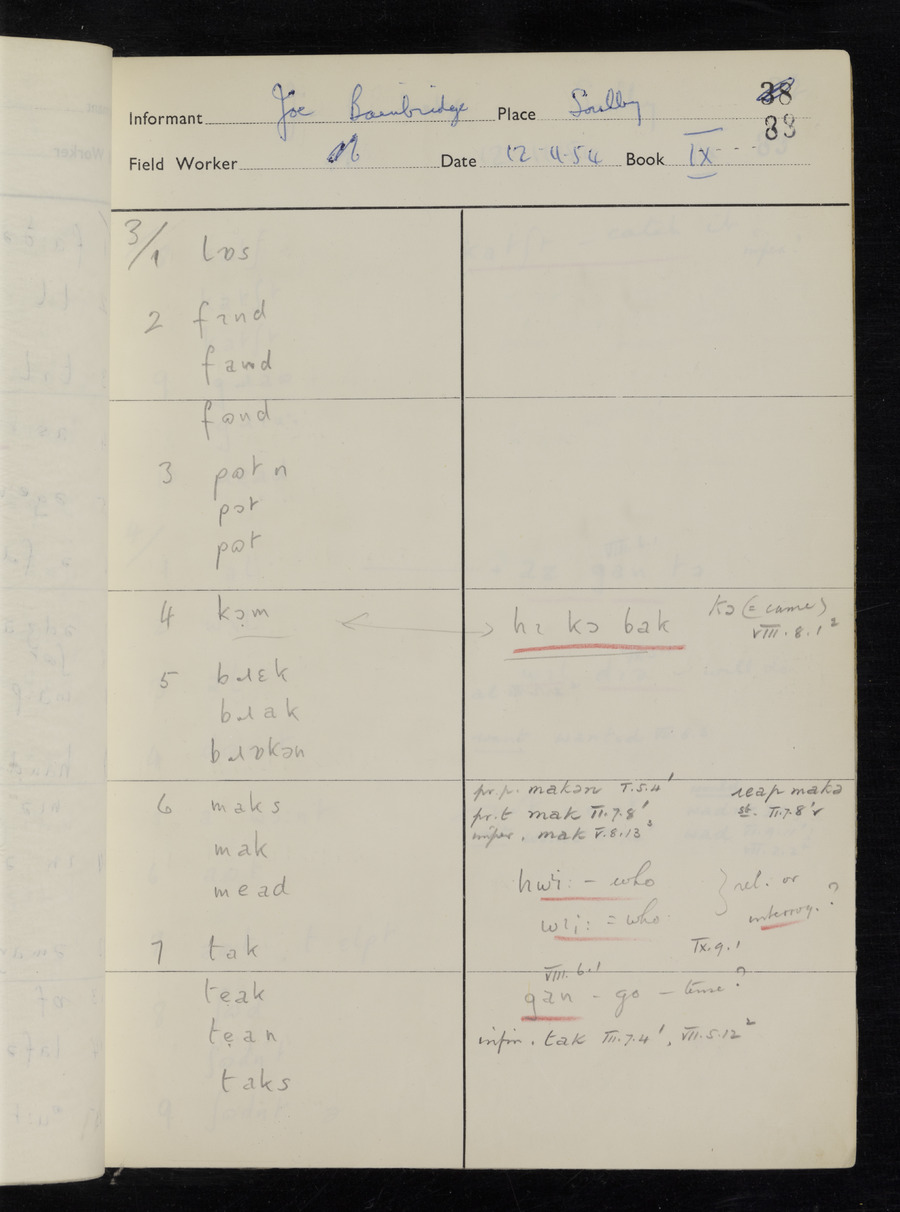 Informant Joe Bainbridge Place Soulby 38
33
Field Worker Date 12-4-54 Book IX
3/1 lɒs
2 fɪnd
fand
fɵnd
3 pɵt n
pɵt
pɵt
4 kɵm hɪ kɔ bak kɔ (= came)
VIII.8.1²
5 bɹɛk
bɹak
bɹɒkən
6 maks pr.p. makən I.5.4¹ reap makə
pr.t mak III.7.8¹ st. II.7.8¹r
mak imper. mak V.8.13³
mead hwi: – who } rel. or
wi: = who interrog. ?
7 tak IX.9.1
VIII.6.1
teak gan – go – tense?
tean infin. tak III.7.4¹, VII.5.12²
taks